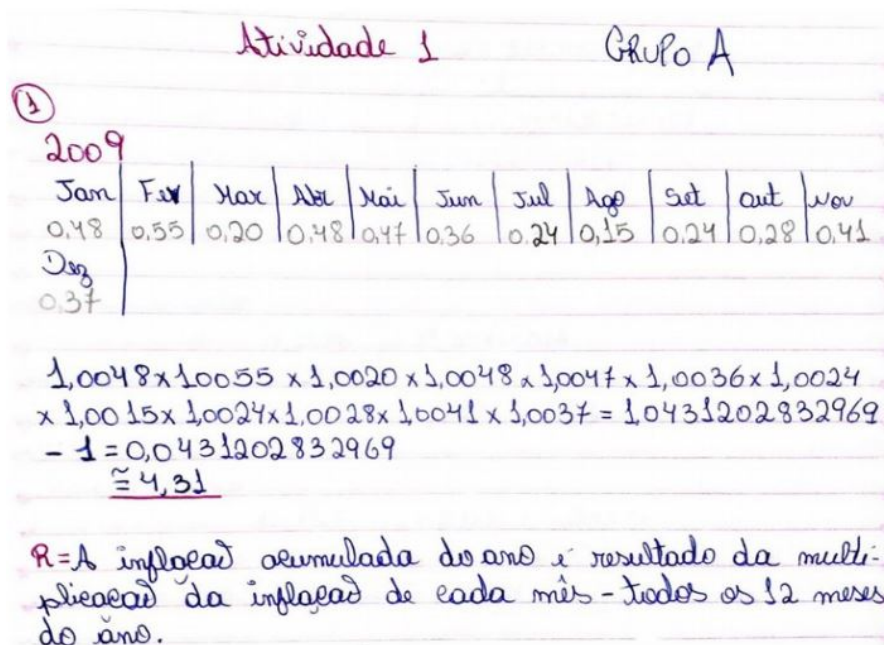 Atividade 1 GRUPO A
1
2009
Jan Fev Mar Abr Mai Jun Jul Ago Set Out Nov
0,48 0,55 0,20 0,48 0,47 0,36 0,24 0,15 0,24 0,28 0,41
Dez
0,37
1,0048 x 1,0055 x 1,0020 x 1,0048 x 1,0047 x 1,0036 x 1,0024
x 1,0015 x 1,0024 x 1,0028 x 1,0041 x 1,0037 = 1,0431202832969
- 1 = 0,0431202832969
≅ 4,31
R = A inflação acumulada do ano é resultado da multi-
plicação da inflação de cada mês - todos os 12 meses
do ano.